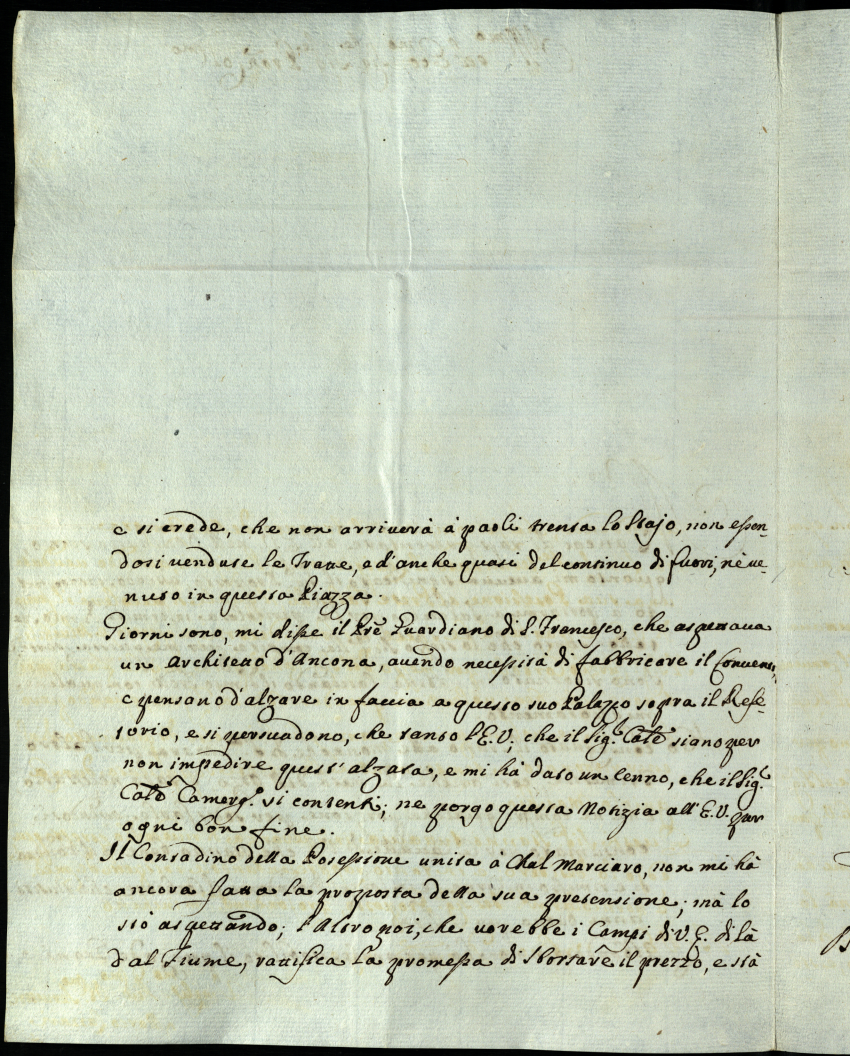 e si crede, che non arriverà à paoli trenta lo Stajo, non essen-
dosi vendute le Tratte, e d'anche quasi del continuo di fuori, nè ve-
nuto in questa Piazza.
Giorni sono, mi disse il Prē Guardiano di S. Francesco, che aspettava
un Architetto d'Ancona, avendo necessità di fabbricare il Convento,
e pensano d'alzare in faccia a questo suo Palazzo sopra il Refe-
torio, e si persuadono, che tanto l'E.V., che il Sig.r Catē siano per
non impedire quest'alzata, e mi hà dato un Cenno, che il Sig.r
Catē Camerg.o vi contenti; ne porgo questa Notizia all'E.V. per
ogni bon fine.
Il Contadino della Posessione unita à Chal Marciaro, non mi hà
ancora fatta la proposta della sua pretensione; mà lo
stò aspettando; l'Altro poi, che vorebbe i Campi di V.E. di là
dal Fiume, rattifica la promessa di sborsare il prezzo, e stà